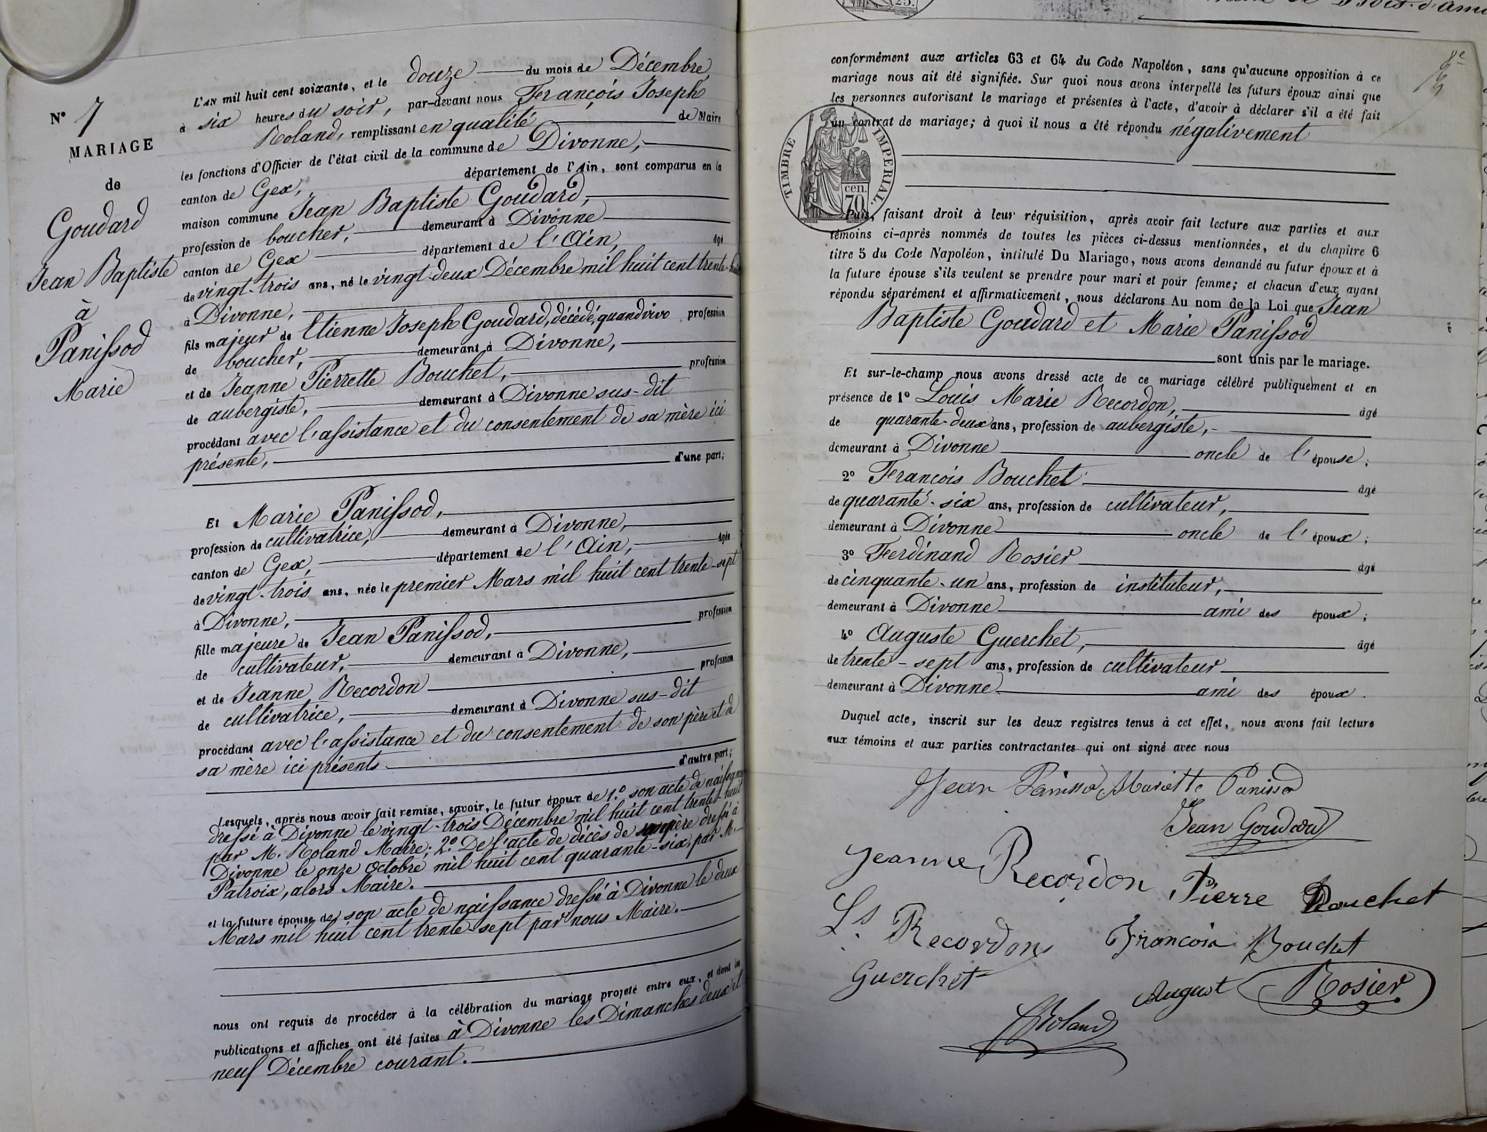 N° 7
MARIAGE
de
Goudard
Jean Baptiste
à
Panissod
Marie
L'an mil huit cent soixante, et le douze du mois de Décembre,
à six heures du soir, par-devant nous François Joseph
Roland, remplissant en qualité de Maire
les fonctions d'Officier de l'état civil de la commune de Divonne,
canton de Gex, département de l'Ain, sont comparus en la
maison commune Jean Baptiste Goudard,
profession de boucher, demeurant à Divonne
canton de Gex département de l'Ain, âgé
de vingt-trois ans, né le vingt-deux Décembre mil huit cent trente-
à Divonne,
fils majeur de Etienne Joseph Goudard, décédé, quand vivo profession
de boucher, demeurant à Divonne,
et de Jeanne Pierrette Bouchet, profession
de aubergiste, demeurant à Divonne sus-dit
procédant avec l'assistance et du consentement de sa mère ici
présente, d'une part;
Et Marie Panissod,
profession de cultivatrice, demeurant à Divonne,
canton de Gex, département de l'Ain, âgée
de vingt-trois ans, née le premier Mars mil huit cent trente-sept
à Divonne,
fille majeure de Jean Panissod, profession
de cultivateur, demeurant à Divonne,
et de Jeanne Recordon profession
de cultivatrice, demeurant à Divonne sus-dit
procédant avec l'assistance et du consentement de son père et de
sa mère ici présents d'autre part;
Lesquels, après nous avoir fait remise, savoir, le futur époux de 1.° son acte de naissance
dressé à Divonne le vingt-trois Décembre mil huit cent trente-huit
par M. Roland Maire; 2.° De l'acte de décès de son père dressé à
Divonne le onze Octobre mil huit cent quarante-six par M.
Patroix, alors Maire.
et la future épouse de son acte de naissance dressé à Divonne le deux
Mars mil huit cent trente-sept par nous Maire.
nous ont requis de procéder à la célébration du mariage projeté entre eux, et dont les
publications et affiches ont été faites à Divonne les Dimanches deux et
neuf Décembre courant.
conformément aux articles 63 et 64 du Code Napoléon, sans qu'aucune opposition à ce
mariage nous ait été signifiée. Sur quoi nous avons interpellé les futurs époux ainsi que
les personnes autorisant le mariage et présentes à l'acte, d'avoir à déclarer s'il a été fait
un contrat de mariage; à quoi il nous a été répondu négativement
TIMBRE IMPERIAL.
cen.
70
Puis, faisant droit à leur réquisition, après avoir fait lecture aux parties et aux
témoins ci-après nommés de toutes les pièces ci-dessus mentionnées, et du chapitre 6
titre 5 du Code Napoléon, intitulé Du Mariage, nous avons demandé au futur époux et à
la future épouse s'ils veulent se prendre pour mari et pour femme; et chacun d'eux ayant
répondu séparément et affirmativement, nous déclarons Au nom de la Loi que Jean
Baptiste Goudard et Marie Panissod
sont unis par le mariage.
Et sur-le-champ nous avons dressé acte de ce mariage célébré publiquement et en
présence de 1° Louis Marie Recordon, âgé
de quarante-deux ans, profession de aubergiste,
demeurant à Divonne oncle de l'épouse;
2° François Bouchet âgé
de quarante-six ans, profession de cultivateur,
demeurant à Divonne oncle de l'époux;
3° Ferdinand Rosier âgé
de cinquante-un ans, profession de instituteur,
demeurant à Divonne ami des époux;
4° Auguste Guerchet, âgé
de trente-sept ans, profession de cultivateur
demeurant à Divonne ami des époux.
Duquel acte, inscrit sur les deux registres tenus à cet effet, nous avons fait lecture
aux témoins et aux parties contractantes qui ont signé avec nous
Jean Panissod Mariette Panissod
Jean Goudard
Jeanne Recordon Pierre Bouchet
Ls Recordon François Bouchet
Guerchet August Rosier
Roland